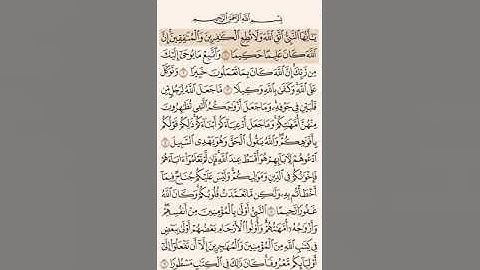 بِسْمِ اللَّهِ الرَّحْمَٰنِ الرَّحِيمِ
يَٰٓأَيُّهَا النَّبِيُّ اتَّقِ اللَّهَ وَلَا تُطِعِ الْكَٰفِرِينَ وَالْمُنَٰفِقِينَ إِنَّ
اللَّهَ كَانَ عَلِيمًا حَكِيمًا ١ وَاتَّبِعْ مَا يُوحَىٰٓ إِلَيْكَ
مِن رَّبِّكَ إِنَّ اللَّهَ كَانَ بِمَا تَعْمَلُونَ خَبِيرًا ٢ وَتَوَكَّلْ
عَلَى اللَّهِ وَكَفَىٰ بِاللَّهِ وَكِيلًا ٣ مَّا جَعَلَ اللَّهُ لِرَجُلٍ مِّن
قَلْبَيْنِ فِي جَوْفِهِ وَمَا جَعَلَ أَزْوَٰجَكُمُ الَّٰٓـِٔي تُظَٰهِرُونَ
مِنْهُنَّ أُمَّهَٰتِكُمْ وَمَا جَعَلَ أَدْعِيَآءَكُمْ أَبْنَآءَكُمْ ذَٰلِكُمْ قَوْلُكُم
بِأَفْوَٰهِكُمْ وَاللَّهُ يَقُولُ الْحَقَّ وَهُوَ يَهْدِي السَّبِيلَ ٤
ادْعُوهُمْ لِءَابَآئِهِمْ هُوَ أَقْسَطُ عِندَ اللَّهِ فَإِن لَّمْ تَعْلَمُوٓا۟ ءَابَآءَهُمْ
فَإِخْوَٰنُكُمْ فِي الدِّينِ وَمَوَٰلِيكُمْ وَلَيْسَ عَلَيْكُمْ جُنَاحٌ فِيمَآ
أَخْطَأْتُم بِهِ وَلَٰكِن مَّا تَعَمَّدَتْ قُلُوبُكُمْ وَكَانَ اللَّهُ
غَفُورًا رَّحِيمًا ٥ النَّبِيُّ أَوْلَىٰ بِالْمُؤْمِنِينَ مِنْ أَنفُسِهِمْ
وَأَزْوَٰجُهُٓ أُمَّهَٰتُهُمْ وَأُو۟لُوا۟ الْأَرْحَامِ بَعْضُهُمْ أَوْلَىٰ بِبَعْضٍ
فِي كِتَٰبِ اللَّهِ مِنَ الْمُؤْمِنِينَ وَالْمُهَٰجِرِينَ إِلَّآ أَن تَفْعَلُوٓا۟ إِلَىٰٓ
أَوْلِيَآئِكُم مَّعْرُوفًا كَانَ ذَٰلِكَ فِي الْكِتَٰبِ مَسْطُورًا ٦